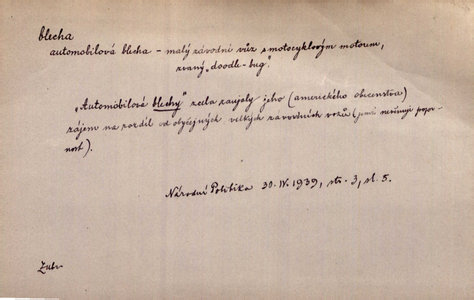 blecha
automobilová blecha – malý závodní vůz s motocyklovým motorem,
zvaný „doodle-bug".
„Automobilové blechy" zcela zaujaly jeho (amerického obecenstva)
zájem na rozdíl od obyčejných velkých závodních vozů (jimž nevěnuje pozor-
nost).
Národní Politika 30. IV. 1939, str. 3, sl. 5.